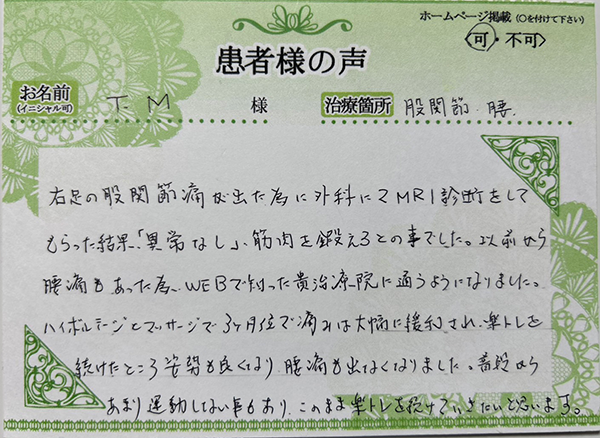 ホームページ掲載（○を付けて下さい）
〈可・不可〉
患者様の声
お名前 T.M 様 治療箇所 股関節・腰
（イニシャル可）
右足の股関節痛が出た為に外科にてMRI診断をして
もらった結果、「異常なし」、筋肉を鍛えろとの事でした。以前から
腰痛もあった為、WEBで知った貴治療院に通うようになりました。
ハイボルテージとマッサージで3ヶ月位で痛みは大幅に緩和され、楽トレを
続けたところ姿勢も良くなり、腰痛も出なくなりました。普段から
あまり運動しない事もあり、このまま楽トレを続けていきたいと思います。